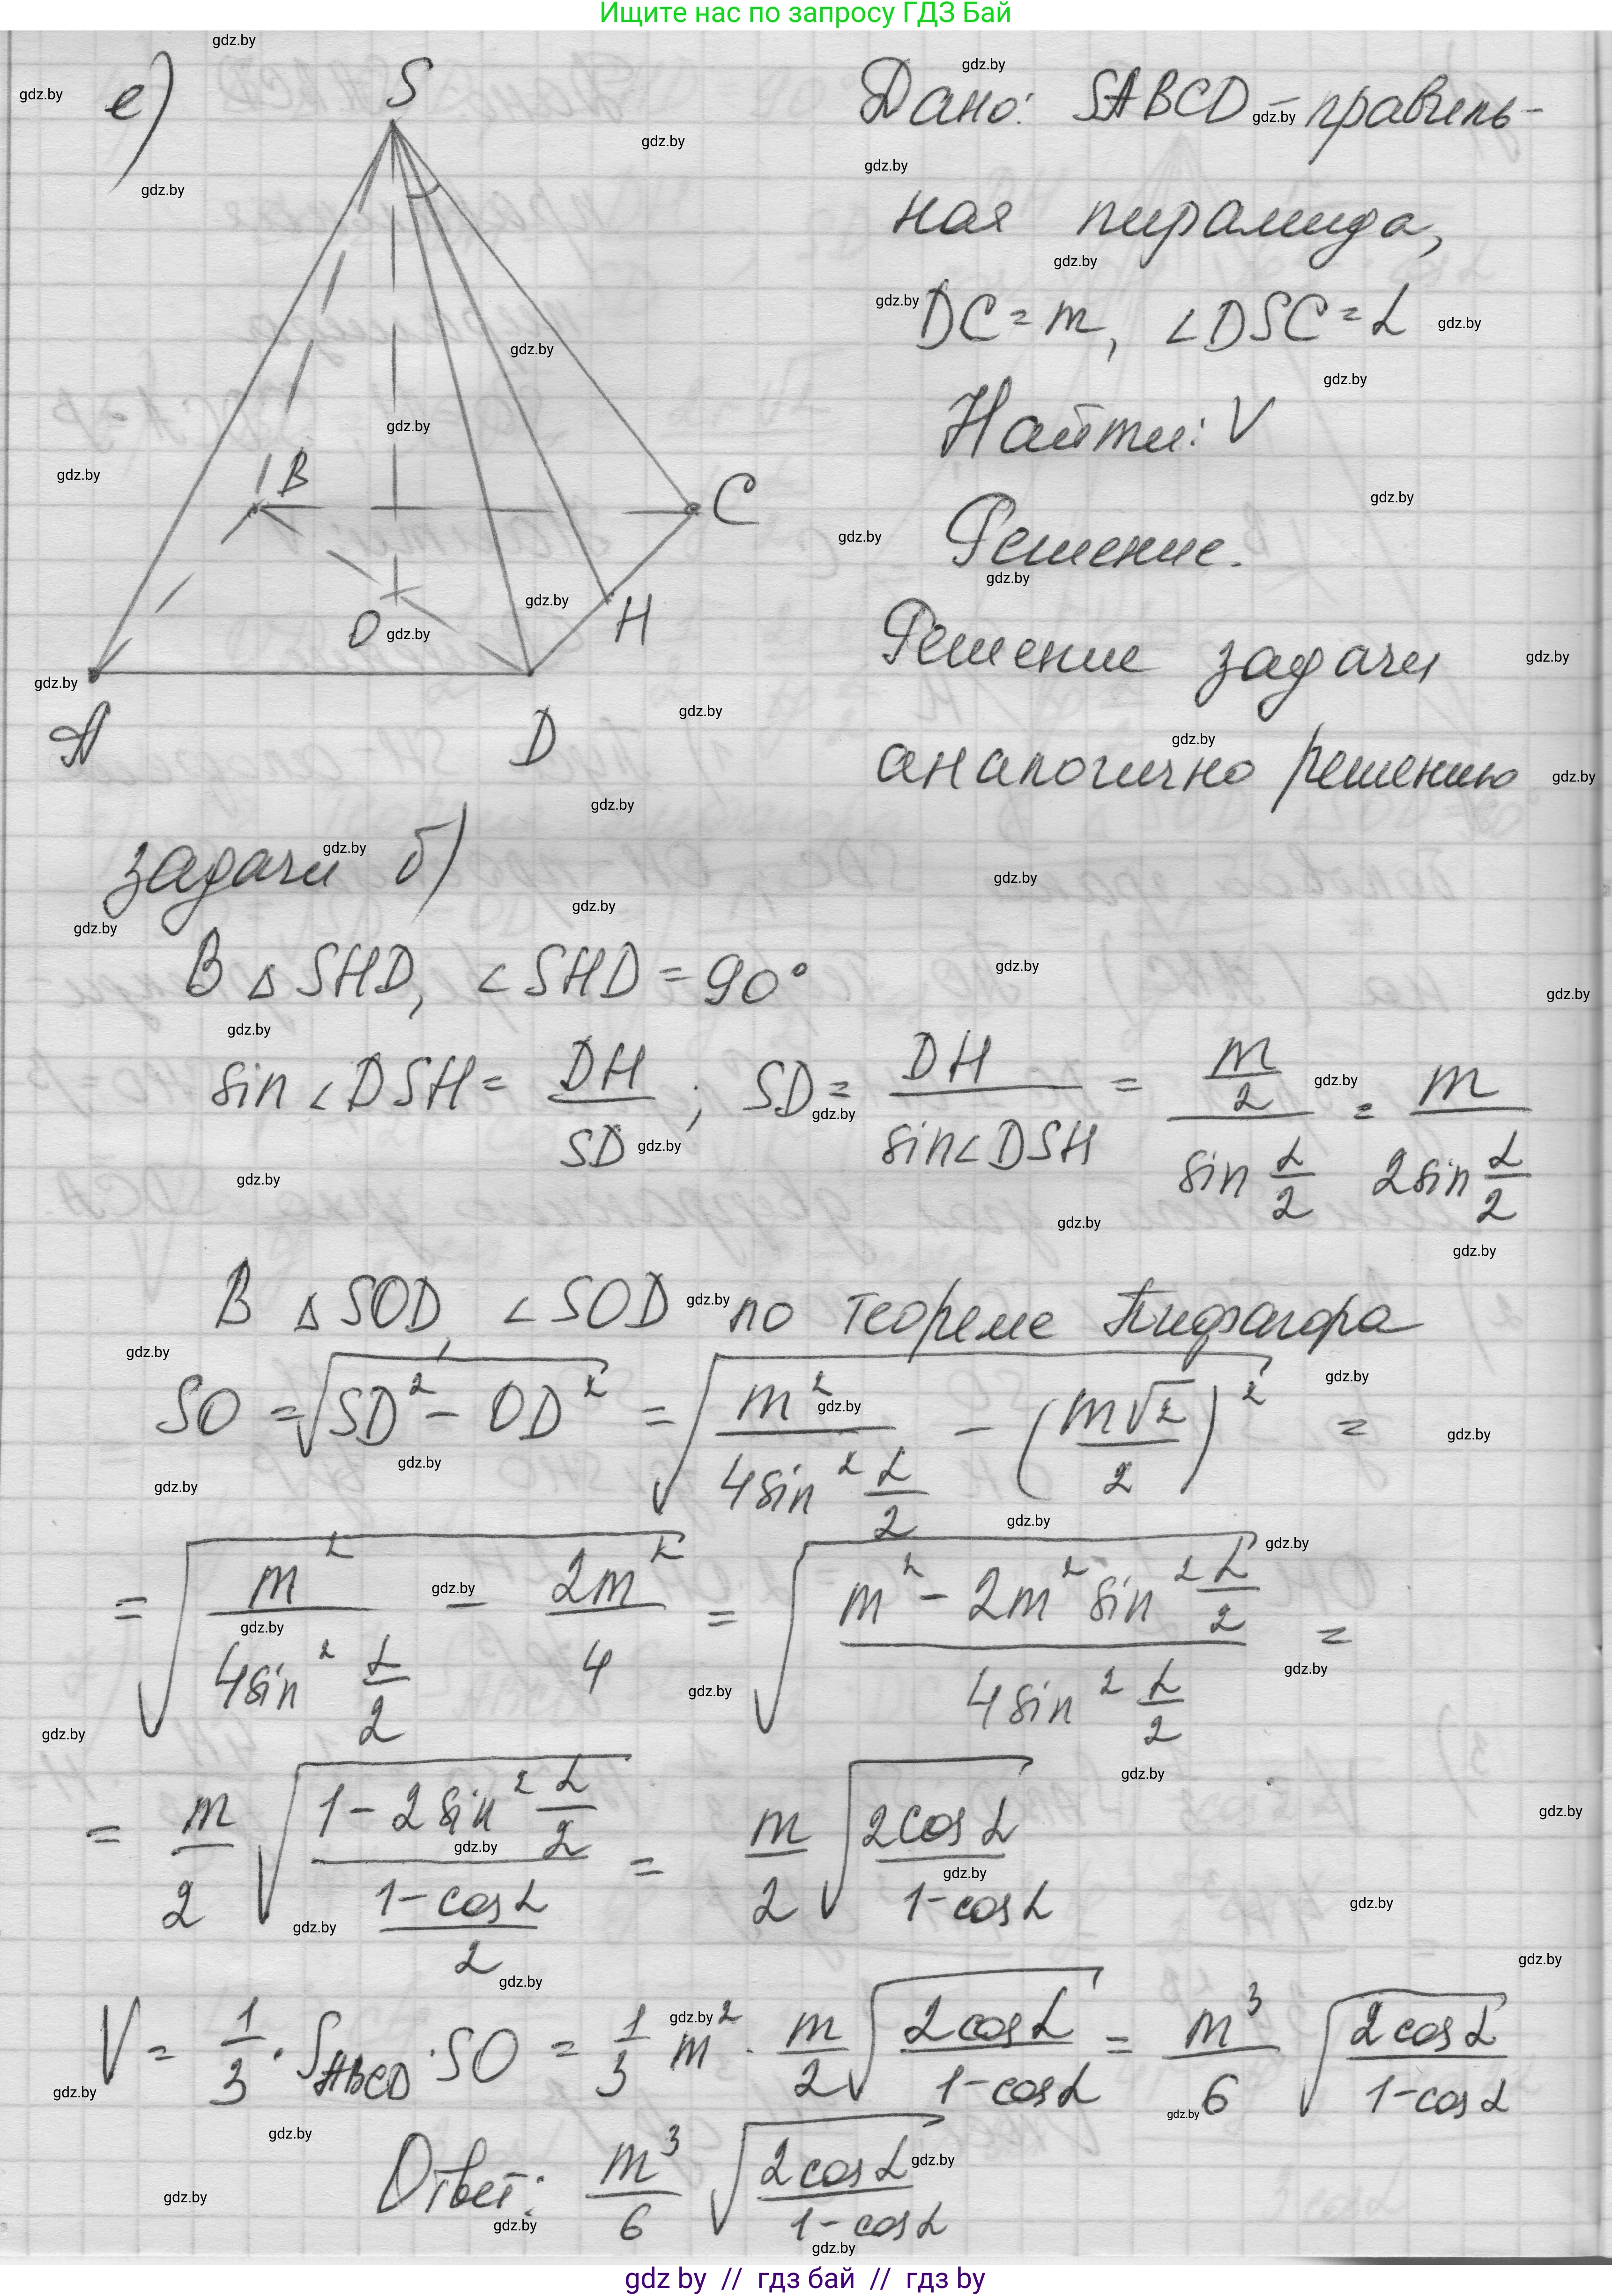 Ищите нас по запросу ГДЗ Бай
е)
S
B
C
O
H
A
D
Дано: SABCD – правиль-
ная пирамида,
DC = m, ∠DSC = α
Найти: V
Решение.
Решение задачи
аналогично решению
задачи б)
В △SHD, ∠SHD = 90°
sin∠DSH = DH/SD ; SD = DH/sin∠DSH = (m/2)/(sin α/2) = m/(2sin α/2)
В △SOD, ∠SOD по теореме Пифагора
SO = √(SD² – OD²) = √(m²/(4sin² α/2) – (m√2/2)²) =
= √(m²/(4sin² α/2) – 2m²/4) = √((m² – 2m² sin² α/2)/(4sin² α/2)) =
= m/2 √((1 – 2sin² α/2)/((1 – cosα)/2)) = m/2 √(2cosα/(1 – cosα))
V = 1/3 · S_ABCD · SO = 1/3 m² · m/2 √(2cosα/(1 – cosα)) = m³/6 √(2cosα/(1 – cosα))
Ответ: m³/6 √(2cosα/(1 – cosα))
gdz by // гдз бай // гдз by